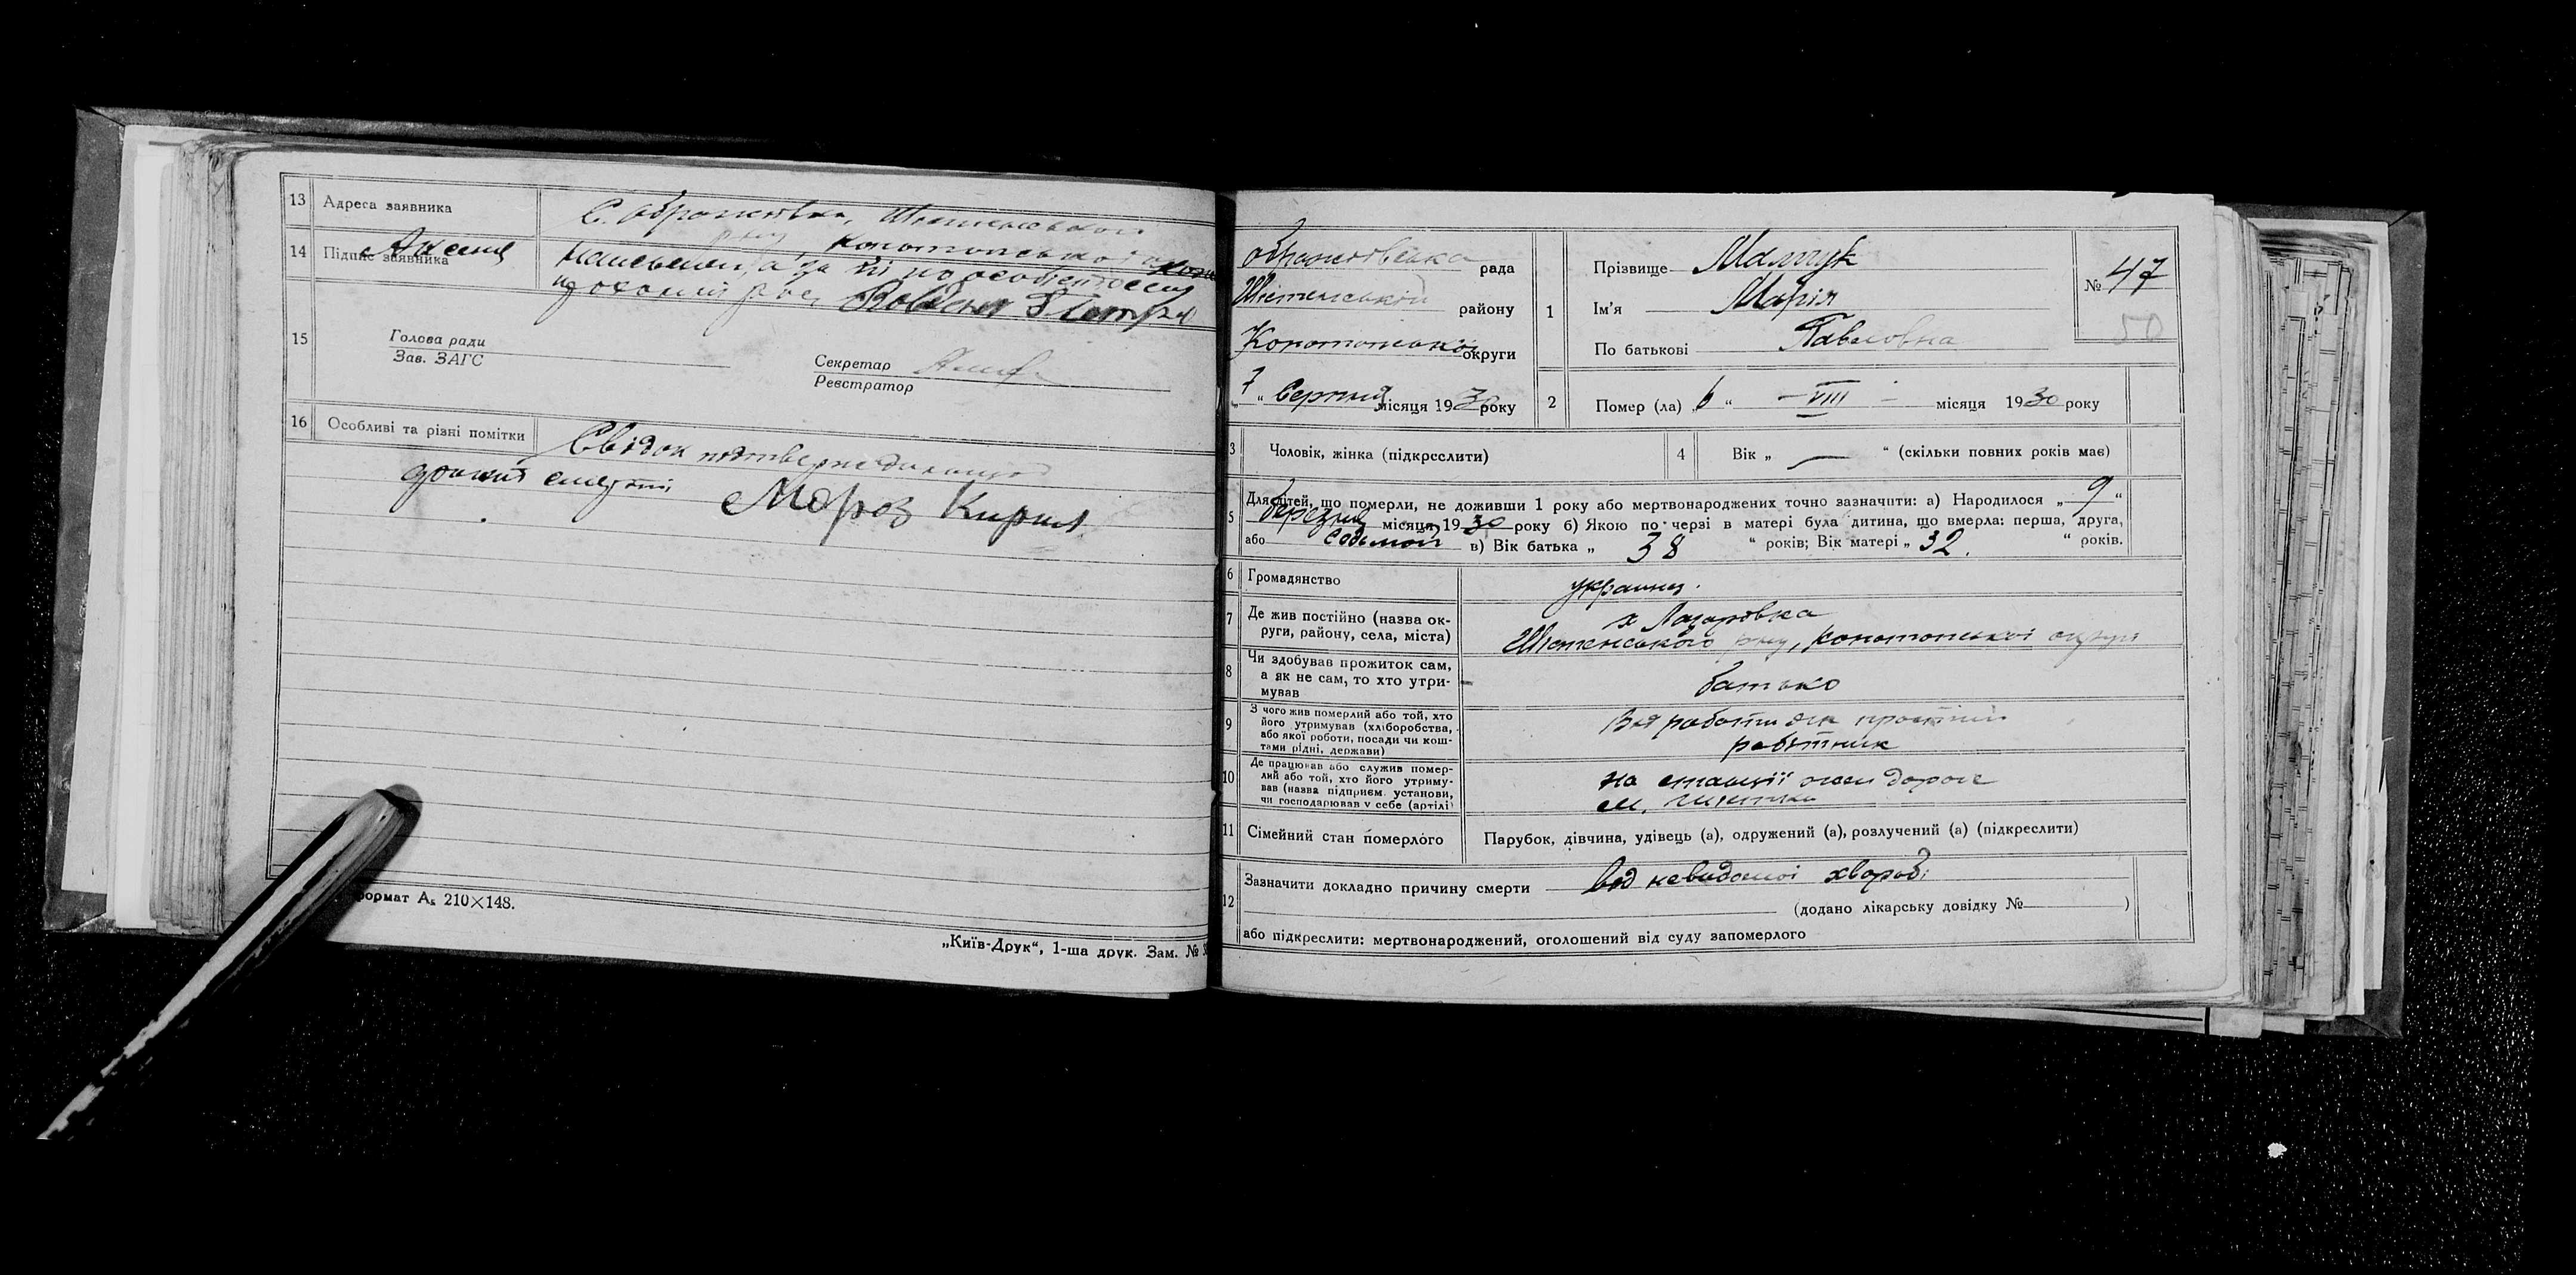 13 Адреса заявника С. Ображіївка,
14 Підпис заявника Аксенія
15 Голова ради
Зав. ЗАГС
Секретар
Реєстратор
16 Особливі та різні помітки Свідок
смерті Мороз Кирил
формат А₅ 210×148.
„Київ-Друк“, 1-ша друк. Зам. №
рада
Шостенської району
Конотопської округи
„7“ Серпня місяця 1930 року
1 Прізвище Мамчук
Ім'я Марія
По батькові Павловна
№ 47
50
2 Помер (ла) „6“ – VIII – місяця 1930 року
3 Чоловік, жінка (підкреслити)
4 Вік „ — “ (скільки повних років має)
5 Для дітей, що померли, не доживши 1 року або мертвонароджених точно зазначити: а) Народилося „9“
березня місяця 1930 року б) Якою по черзі в матері була дитина, що вмерла: перша, друга,
або седьмой в) Вік батька „38“ років; Вік матері „32.“ років.
6 Громадянство украинц.
7 Де жив постійно (назва ок-
руги, району, села, міста)
х Лазаровка
Шостенського р-ну, конотопської округи
8 Чи здобував прожиток сам,
а як не сам, то хто утри-
мував
батько
9 З чого жив померлий або той, хто
його утримував (хліборобства,
або якої роботи, посади чи кош-
тами рідні, держави)
работник
10 Де працював або служив помер-
лий або той, хто його утриму-
вав (назва підприєм. установи,
чи господарював у себе (артілі)
на станції жел дороге
м. Шостка
11 Сімейний стан померлого Парубок, дівчина, удівець (а), одружений (а), розлучений (а) (підкреслити)
12 Зазначити докладно причину смерті від невидомої хвороби
(додано лікарську довідку № )
або підкреслити: мертвонароджений, оголошений від суду запомерлого